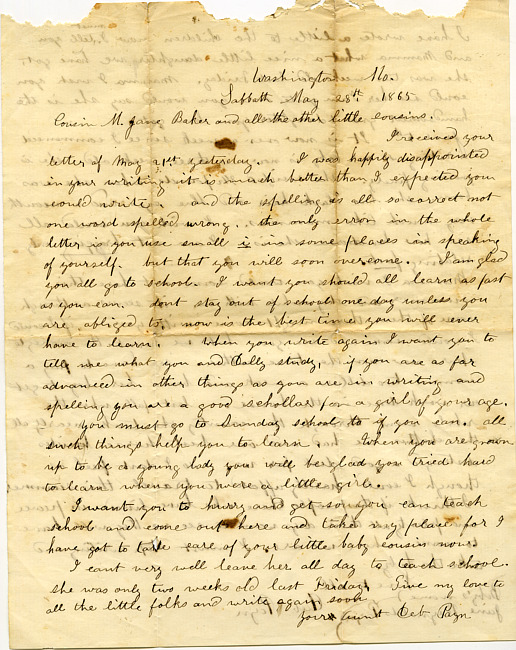 Washington Mo.
Sabbath May 28th 1865
Cousin M. Jane Baker and all the other little cousins.
I received your
letter of May 21st yesterday. I was happily disappointed
in your writing it is much better than I expected you
could write. and the spelling is all so correct not
one word spelled wrong. the only error in the whole
letter is you use small i in some places in speaking
of yourself. but that you will soon overcome. I am glad
you all go to school. I want you should all learn as fast
as you can. dont stay out of school one day unless you
are abliged to. now is the best time you will ever
have to learn. When you write again I want you to
tell me what you and Dally study, if you are as far
advanced in other things as you are in writing and
spelling you are a good schollar for a girl of your age.
You must go to Sunday school to if you can. all
such things help you to learn. When you are grown
up to be a young lady you will be glad you tried hard
to learn when you were a little girl.
I want you to hurry and get so you can teach
school and come out here and take my place for I
have got to take care of your little baby cousin now.
I cant very well leave her all day to teach school.
she was only two weeks old last Friday. Give my love to
all the little folks and write again soon
Your aunt Deb Payn